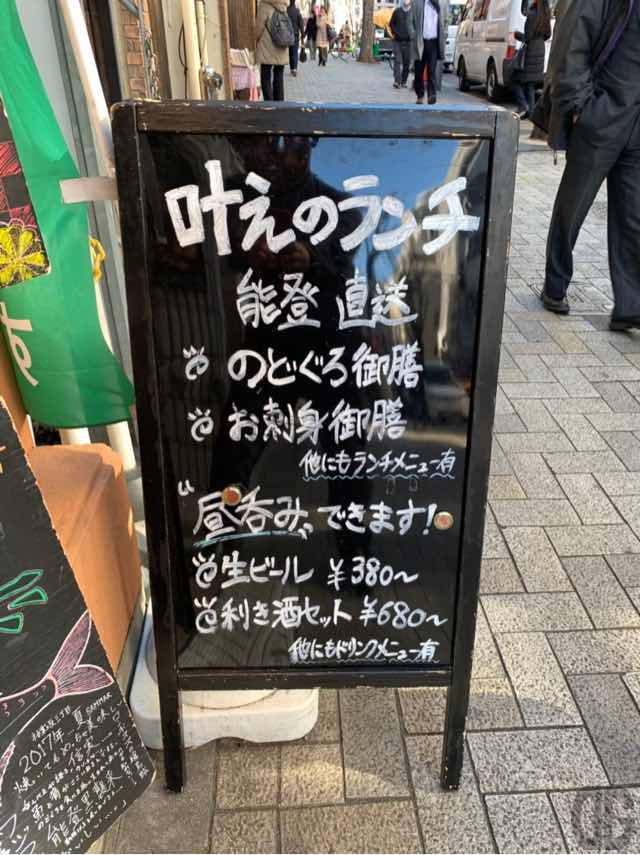 叶えのランチ
能登 直送
のどぐろ御膳
お刺身御膳
他にもランチメニュー有
"昼呑み"できます!
生ビール ¥380~
利き酒セット ¥680~
他にもドリンクメニュー有
す
夏
2017年
能登